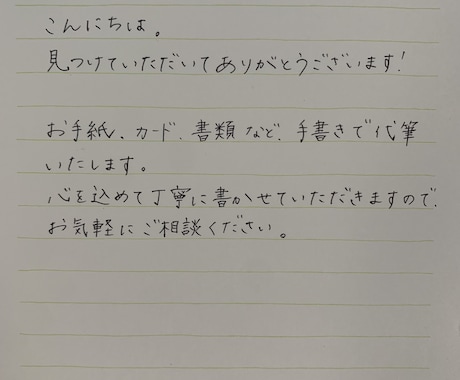 こんにちは。
見つけていただいてありがとうございます!
お手紙、カード、書類など、手書きで代筆
いたします。
心を込めて丁寧に書かせていただきますので、
お気軽にご相談ください。